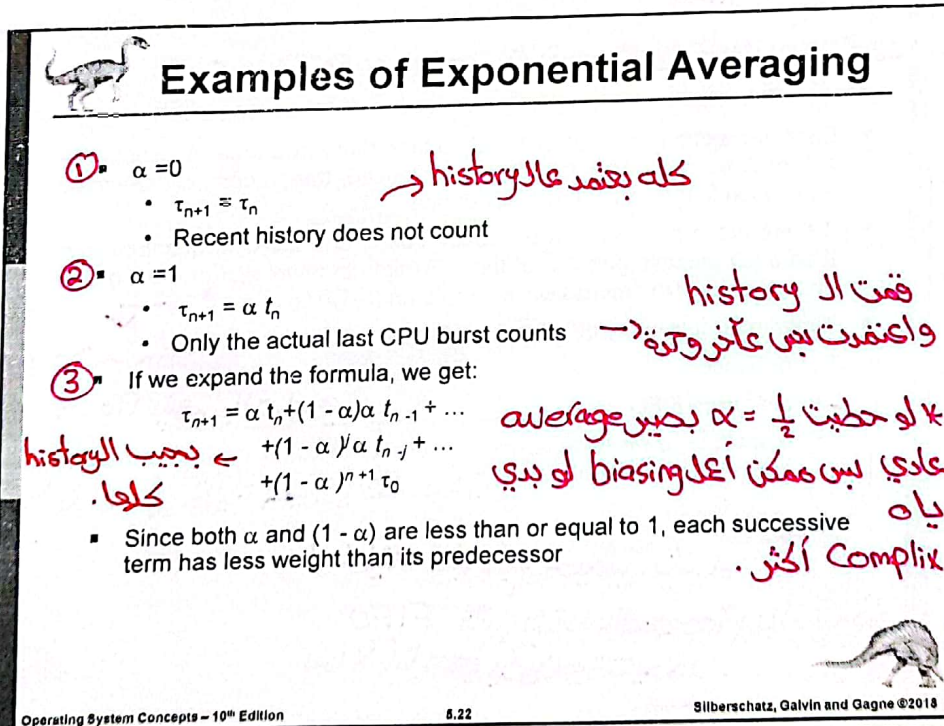 Examples of Exponential Averaging
① ▪ α =0
• τn+1 = τn
• Recent history does not count
→ كله بعتمد عالـ history
② ▪ α =1
• τn+1 = α tn
• Only the actual last CPU burst counts
قمت الـ history
واعتمدت بس عآخر وحدة ←
③ ▪ If we expand the formula, we get:
τn+1 = α tn+(1 - α)α tn -1 + ...
+(1 - α )j α tn -j + ...
+(1 - α )n +1 τ0
← بجيب الـ history
كلها.
* لو حطيت α = 1/2 بصير average
عادي بس ممكن أعمل biasing لو بدي
ياه
Complix أكثر.
▪ Since both α and (1 - α) are less than or equal to 1, each successive
term has less weight than its predecessor
Operating System Concepts – 10th Edition
5.22
Silberschatz, Galvin and Gagne ©2018